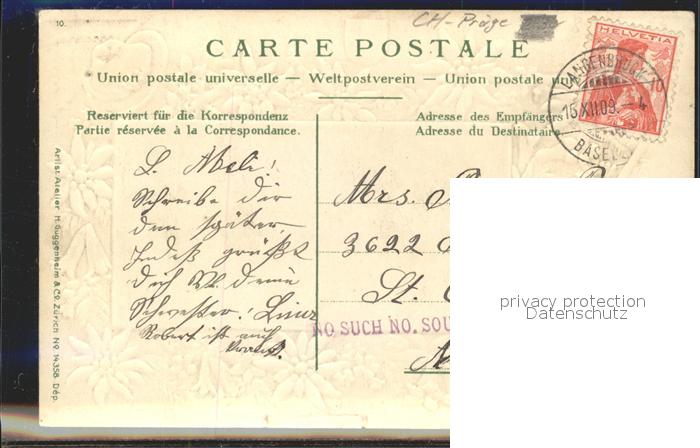 10.
CH-Präge
CARTE POSTALE
Union postale universelle — Weltpostverein — Union postale uni
Reserviert für die Korrespondenz
Partie réservée à la Correspondance.
Adresse des Empfängers
Adresse du Destinataire
HELVETIA
10
LANGENBRUCK
15.XII.09.—4
BASEL
Artist. Atelier H. Guggenheim & Co. Zürich No 14358. Dép.
L. Meli!
Schreibe Dir
dann später,
Indeß grüßt
Dich Deine
Schwester, Lina
Robert ist auch
Mrs.
3622
St.
NO SUCH NO. SOU
privacy protection
Datenschutz